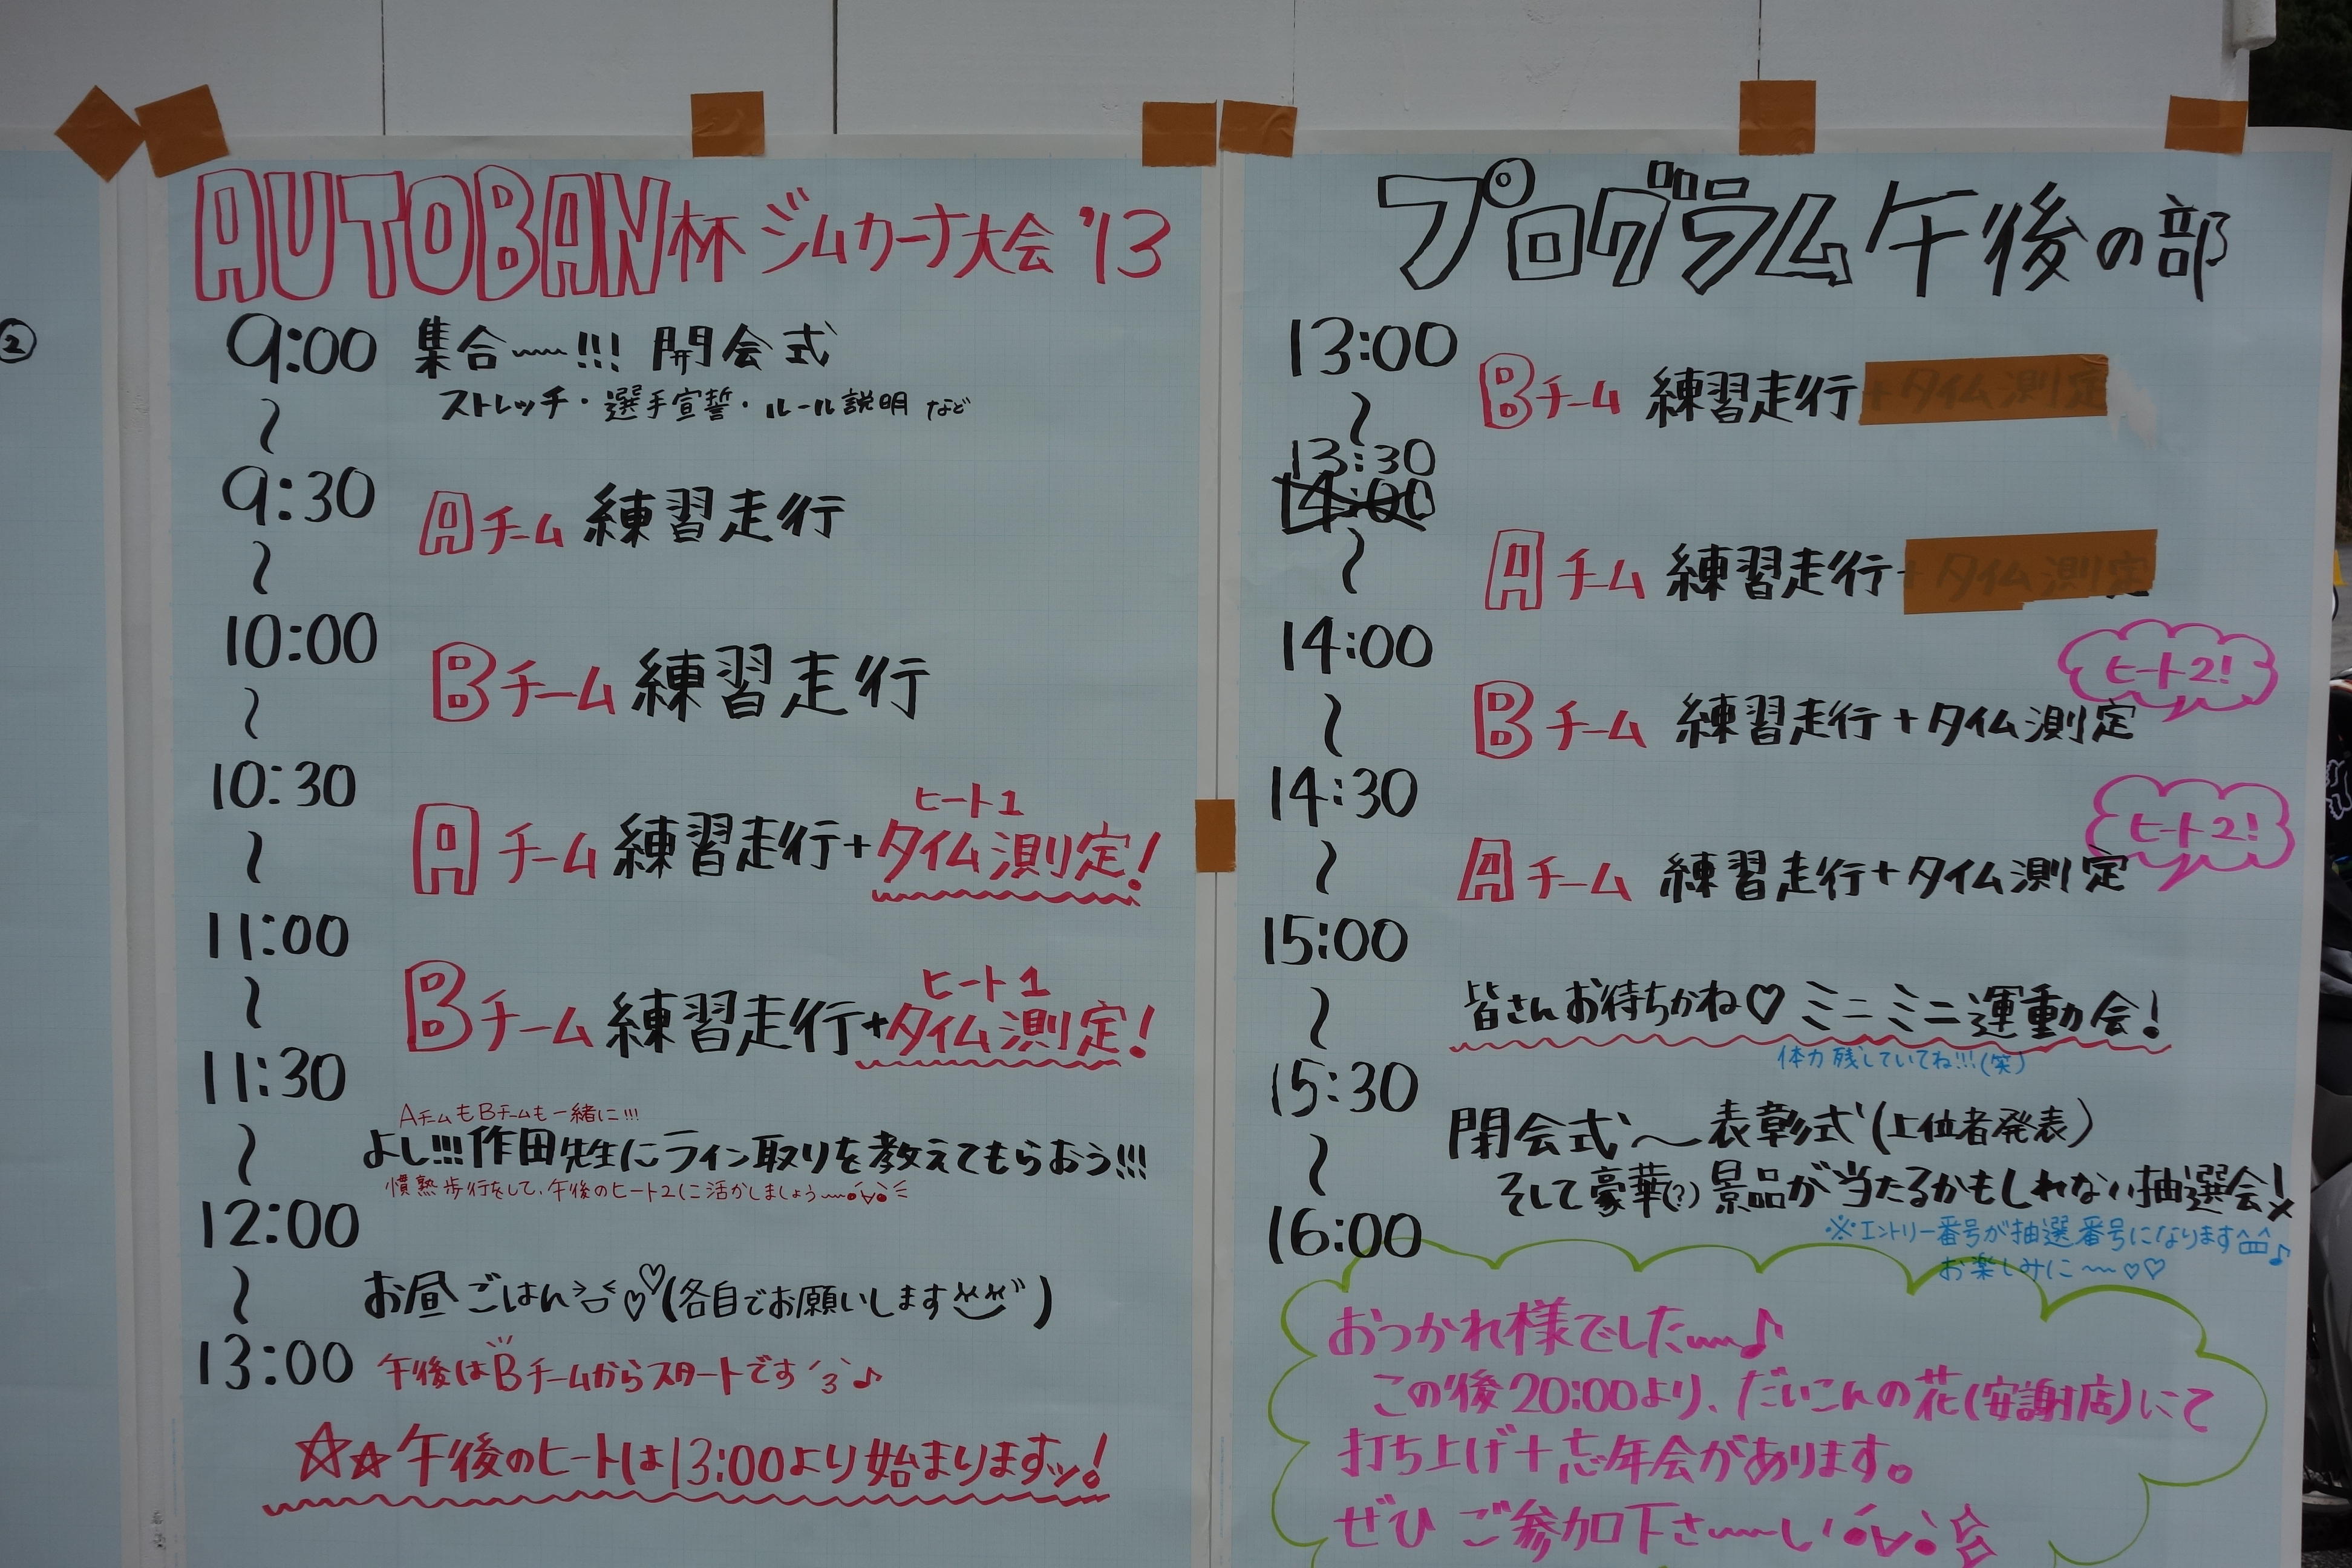 ②
AUTOBAN杯 ジムカーナ大会 '13
9:00 集合〜!!! 開会式
ストレッチ・選手宣誓・ルール説明 など
〜
9:30
Aチーム 練習走行
〜
10:00
Bチーム 練習走行
〜
10:30
ヒート1
Aチーム 練習走行+タイム測定!
〜
11:00
ヒート1
Bチーム 練習走行+タイム測定!
〜
11:30
AチームもBチームも一緒に!!!
〜 よし!!!作田先生にライン取りを教えてもらおう!!!
慣熟歩行をして、午後のヒート2に活かしましょう〜
12:00
〜 お昼ごはん♡♡(各自でお願いします)
13:00 午後はBチームからスタートです♪
☆☆午後のヒートは13:00より始まりますッ!
プログラム 午後の部
13:00
Bチーム 練習走行+タイム測定
〜
13:30
14:00
Aチーム 練習走行+タイム測定
〜
14:00
ヒート2!
Bチーム 練習走行+タイム測定
〜
14:30
ヒート2!
Aチーム 練習走行+タイム測定
〜
15:00
〜 皆さんお待ちかね♡ミニミニ運動会!
体力残していてね!!!(笑)
15:30
閉会式〜表彰式(上位者発表)
〜 そして豪華(?)景品が当たるかもしれない抽選会!
16:00
※エントリー番号が抽選番号になります♪
お楽しみに〜♡♡
おつかれ様でした〜♪
この後20:00より、だいこんの花(安謝店)にて
打ち上げ+忘年会があります。
ぜひ ご参加下さ〜い